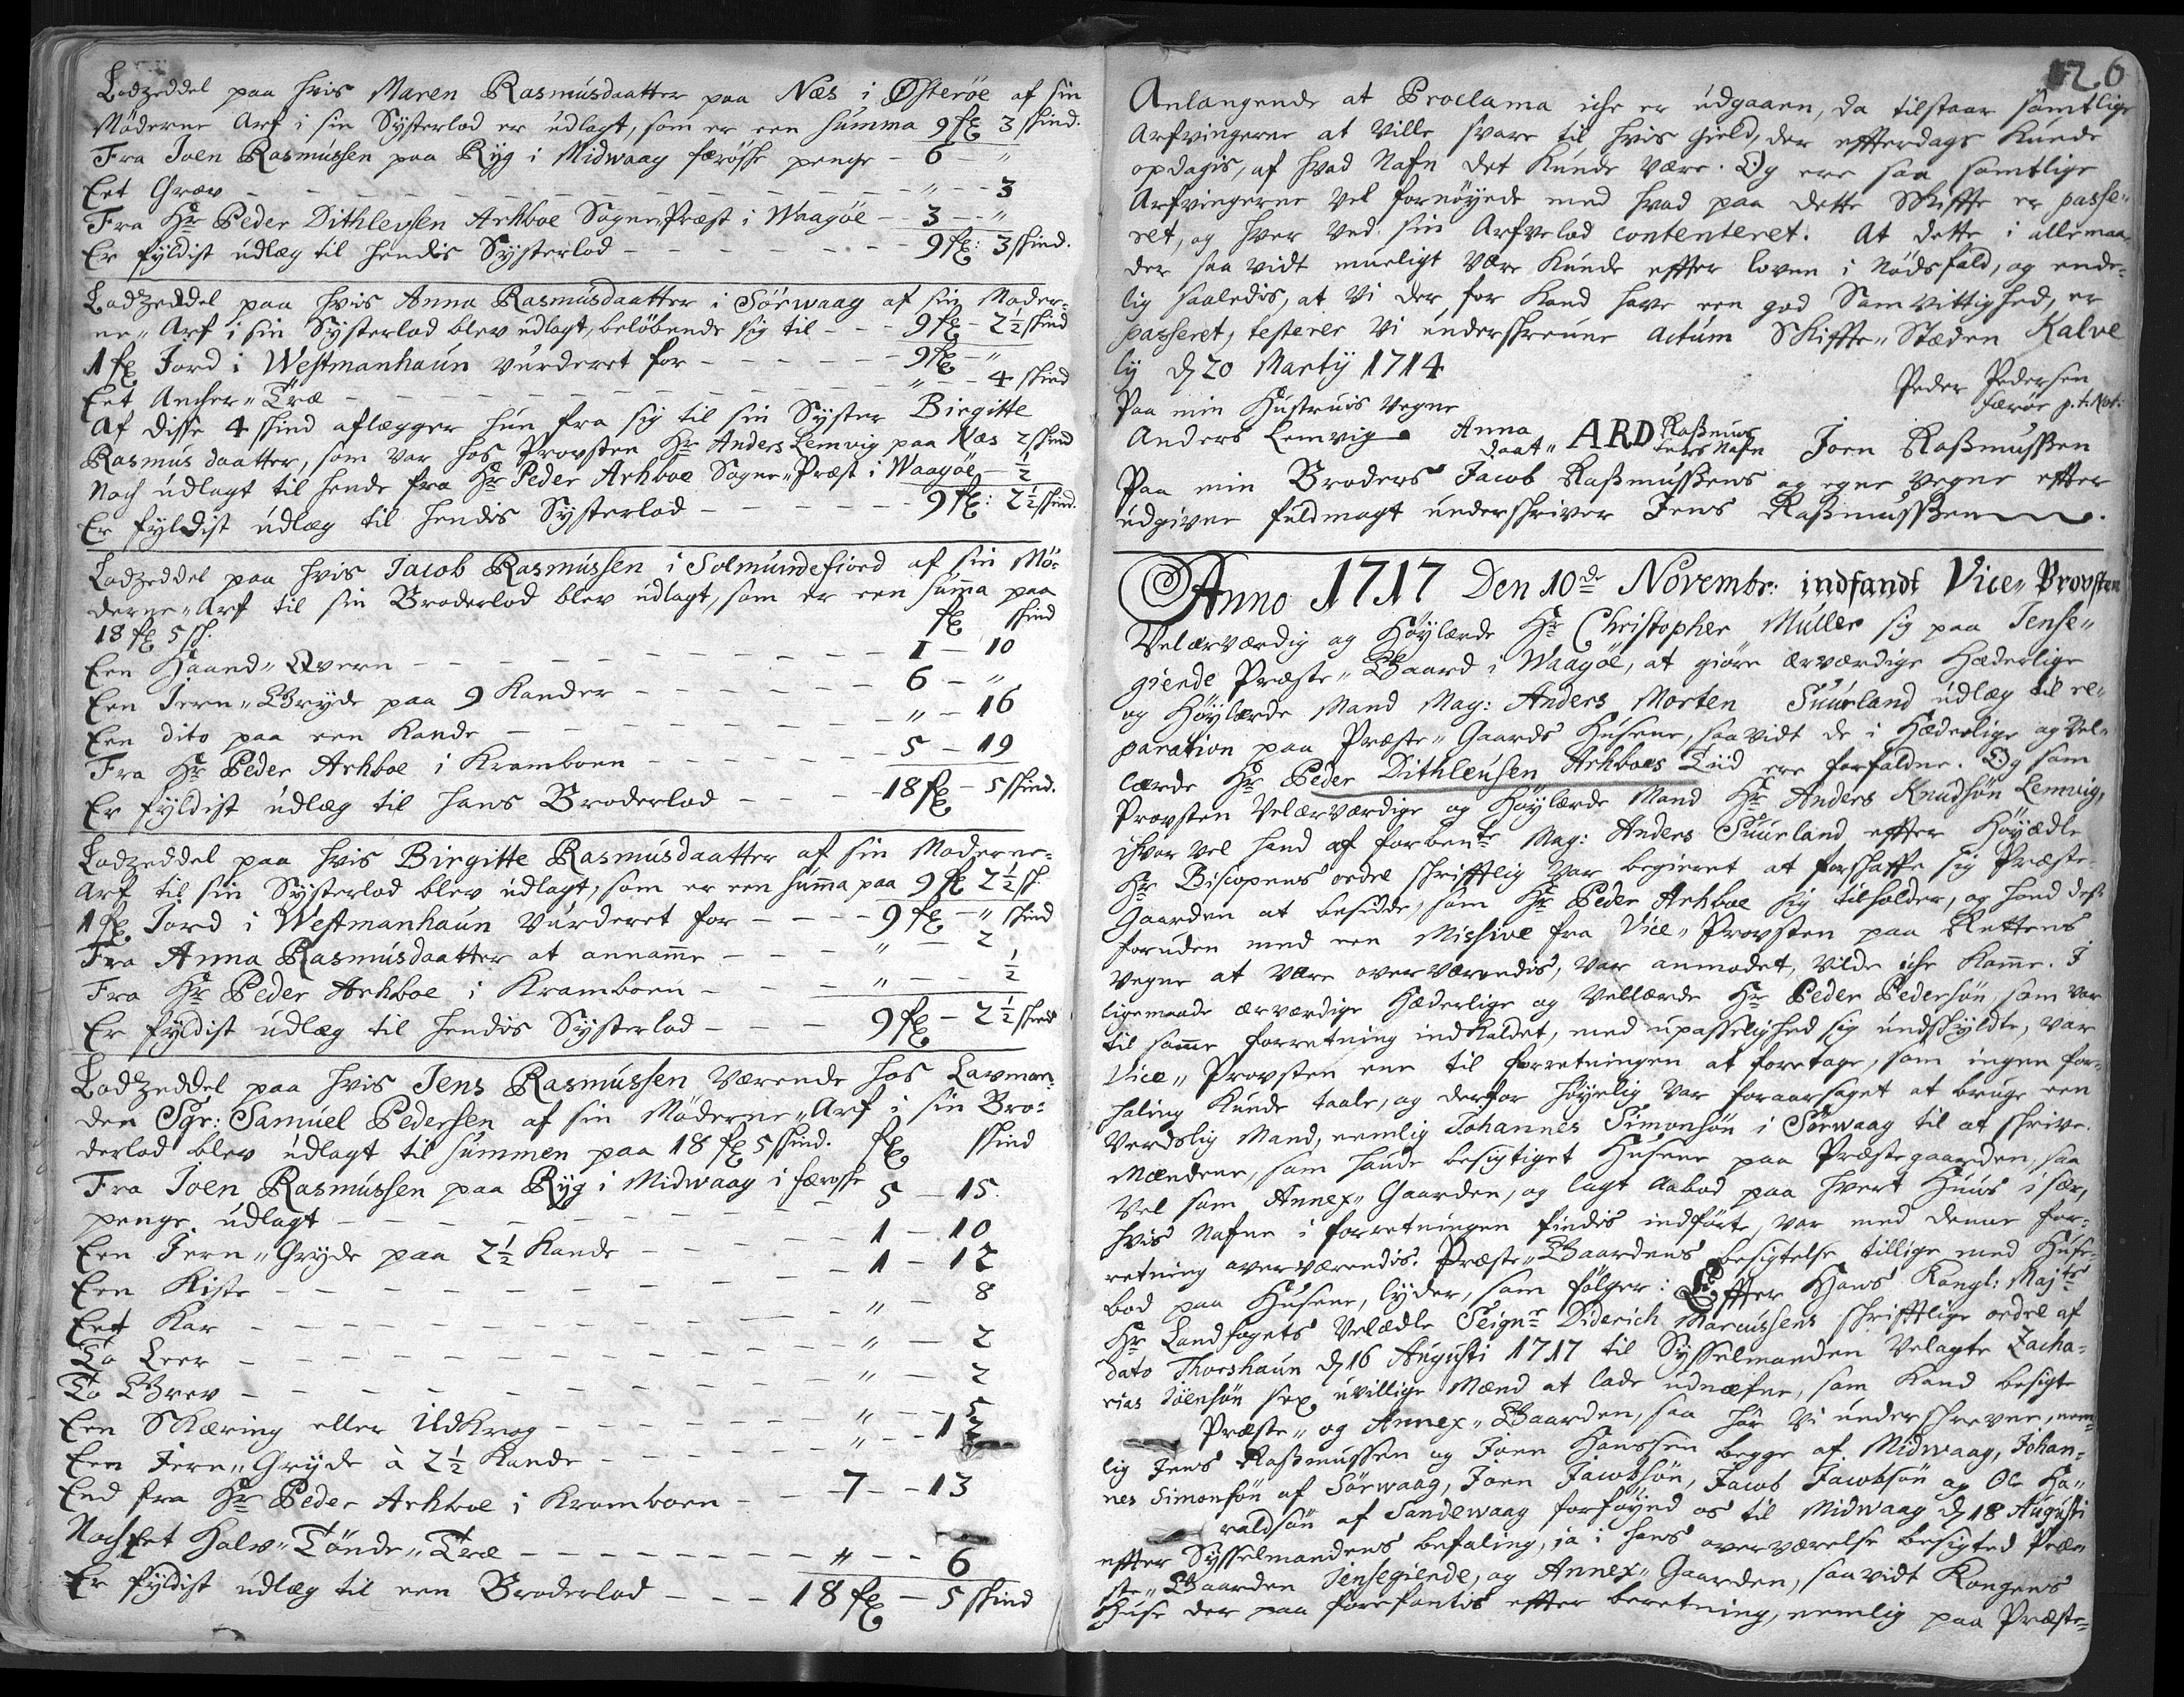 Lodzeddel paa hvis Maren Rasmusdaatter paa Næs i Østeröe af sin
Möderne Arf i sin Systerlod er udlagt, som er een Summa 9 fl 3 skind.
Fra Joen Rasmussen paa Ryg i Midwaag færøske penge - 6 - "
Eet Græv - - - " - - 3
Fra Hr Peder Dithlevsen Arhboe SognePræst i Waagöe - - 3 - - "
Er fyldist udlæg til hendis Systerlod - - - 9 fl: 3 skind.
Lodzeddel paa hvis Anna Rasmusdaatter i Sörwaag af sin Moder-
ne" Arf i sin Systerlod blev udlagt, belöbende sig til - - - 9 fl - 2½ skind
1 fl Jord i Westmanhaun vurderet for - - - 9 fl - "
Eet Ancher" Træ - - - " - - 4 skind
Af disse 4 skind aflægger hun fra sig til sin Syster Birgitte
Rasmus daatter, som var hos Provsten Hr Anders Lemvig paa Næs 2 skind
Noch udlagt til hende fra Hr Peder Arhboe Sogne"Præst i Waagöe - ½
Er fyldist udlæg til hendis Systerlod - - - 9 fl: 2½ skind.
Lodzeddel paa hvis Jacob Rasmussen i Solmundefiord af sin Mö-
derne"Arf til sin Broderlod blev udlagt, som er een suma paa
18 fl 5 sk. fl skind
Een Haand" Qvern - - - 1 - 10
Een Jern" Gryde paa 9 Kander - - - 6 - "
Een dito paa een Kande - - - " - 16
Fra Hr Peder Arhboe i Kramboen - - - 5 - 19
Er fyldist udlæg til hans Broderlod - - - 18 fl - 5 skind.
Lodzeddel paa hvis Birgitte Rasmusdaatter af sin Moderne-
Arf til sin Systerlod blev udlagt, som er een suma paa 9 fl 2½ sk.
1 fl Jord i Westmanhaun vurderet for - - - - 9 fl - " skind
Fra Anna Rasmusdaatter at annamme - - - " - 2
Fra Hr Peder Arhboe i Kramboen - - - " - - ½
Er fyldist udlæg til hendis Systerlod - - - 9 fl - 2½ skind
Lodzeddel paa hvis Jens Rasmussen værende hos Lavman-
den Sgr: Samuel Pedersen af sin Möderne"Arf i sin Bro-
derlod blev udlagt til summen paa 18 fl 5 skind. fl skind
Fra Joen Rasmussen paa Ryg i Midwaag i færøske
penge udlagt - - - 5 - 15
Een Jern" Gryde paa 2½ Kande - - - 1 - 10
Een Kiste - - - 1 - 12
Eet Kar - - - " - 8
To Leer - - - " - 2
To Grev - - - " - 2
Een Skæring eller Ildkrog - - - " - - 5
Een Jern" Gryde à 2½ Kande - - - " - - 1
End fra Hr Peder Arhboe i Kramboen - - 7 - - 13
Noch Eet Halv" Tönde" Træ - - - " - - 6
Er fyldist udlæg til een Broderlod - - - 18 fl - 5 skind
126
Anlangende at Proclama iche er udgaaen, da tilstaar samtlige
Arfvingerne at ville svare til hvis Gield, der effterdags kunde
opdagis, af hvad Nafn det kunde være. Og ere saa samtlige
Arfvingerne vel fornöyede med hvad paa dette Skiffte er passe-
ret, og hver ved sin Arfvelod contenteret. At dette i allemaa-
der saa vidt mueligt være kunde effter loven i Nödsfald, og ende-
lig saaledis, at vi der for kand have een god Samvittighed, er
passeret, testerer vi underskreune Actum Skiffte" Stæden Kalve
ly d 20 Martij 1714
Peder Pedersen
Færøe p. t. Not:
Paa min Hustruis Vegne
Anders Lemvig Anna ARD Raßmus Joen Raßmußen
daat" ters Nafn
Paa min Broders Jacob Raßmußens og egne Vegne effter
udgivne fuldmagt underskriver Jens Raßmußen.
Anno 1717 Den 10de Novembr: indfandt Vice" Provsten
Velærværdig og Höylærde Hr Christopher Müller sig paa Jense"
giende Præste" Gaard i Waagöe, at giöre ærværdige Hæderlige
og Höylærde Mand Mag: Anders Morten Suurland udlæg til re-
paration paa Præste" Gaards Husene, saavidt de i Hæderlige og Vel-
lærde Hr Peder Dithleusen Arhboes Tiid ere forfaldne. Og som
Provsten Velærværdige og Höylærde Mand Hr Anders Knudsön Lemvig,
ihvor vel hand af forbente Mag: Anders Suurland effter Höyædle
Hr Biscopens ordre skrifftlig var begieret at forskaffe sig Præste-
Gaarden at besidde, som Hr Peder Arhboe sig tilholder, og hand des-
foruden med een Missive fra Vice" Provsten paa Rettens
Vegne at være overværendis, var anmodet, vilde iche komme. I
ligemaade ærværdige Hæderlige og Vellærde Hr Peder Pedersön, som var
til samme forretning indkaldet, med upasselighed sig undskyldte, var
Vice" Provsten ene til forretningen at foretage, som ingen for-
haling kunde taale, og derfor höyelig var foraarsaget at bruge een
Verdslig Mand, nemlig Johannes Simonsön i Sörwaag til at skrive.
Mændene, som hafde besigtiget Husene paa Præstegaarden, saa
vel som Annex" Gaarden, og lagt Aabod paa hvert Huus i sær,
hvis Nafne i forretningen findis indförte, var med denne for-
retning overværendis. Præste" Gaardens besigtelse tillige med Huse-
bod paa Husene, lyder, som fölger: Effter Hans Kongl: Majts
Hr Landfogets Velædle Seignr Diderich Marcussens skrifftlige ordre af
dato Thorshaun d 16 Augusti 1717 til Sysselmanden Velagte Zacha-
rias Joensön sex uvillige Mænd at lade udnæfne, som kand besigte
Præste" og Annex" Gaarden, saa har vi underskrevne, nem-
lig Jens Raßmussen og Joen Hanssen begge af Midwaag, Johan-
nes Simonsön af Sörwaag, Joen Jacobsön, Jacob Jacobsön og Ole Ha-
raldsön af Sandewaag forföyed os til Midwaag d 18 Augusti
effter Sysselmandens befaling, ja i hans overværelse besigted Præ-
ste" Gaarden Jensegiende, og Annex" Gaarden, saavidt Kongens
Huse der paa forefantis effter beretning, nemlig paa Præste-